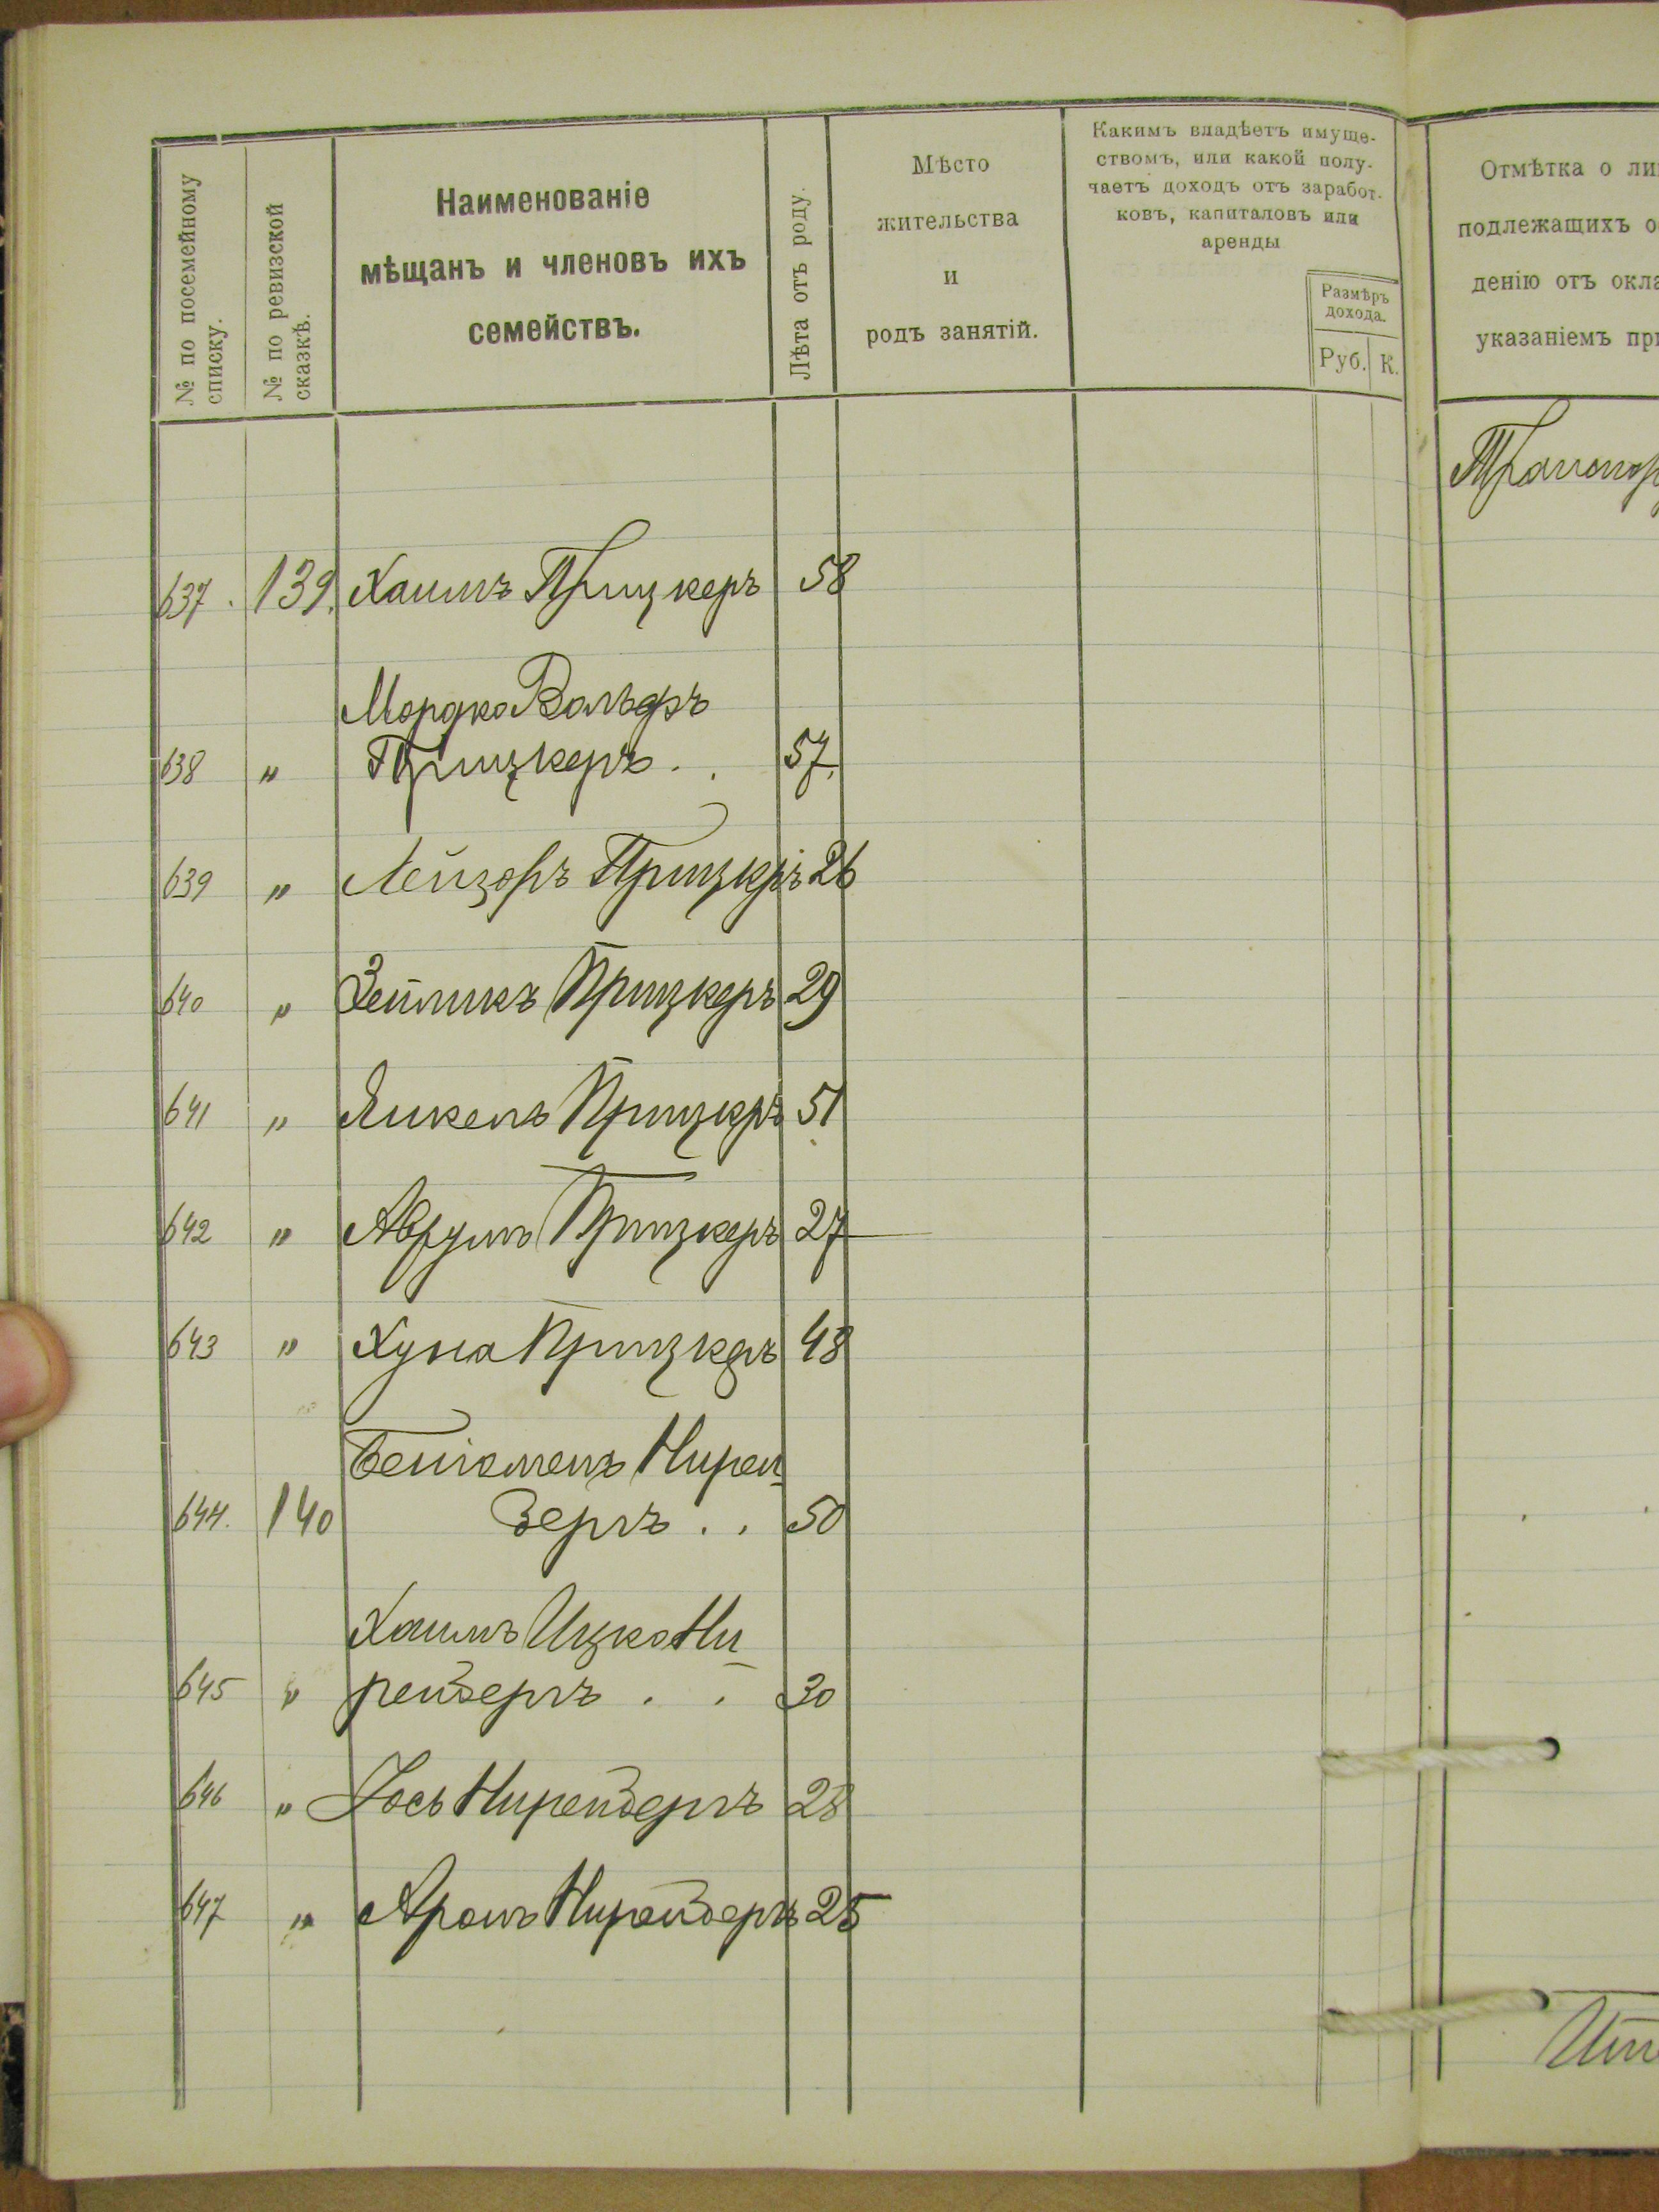 № по посемейному
списку.
№ по ревизской
сказкѣ.
Наименованіе
мѣщанъ и членовъ ихъ
семействъ.
Лѣта отъ роду.
Мѣсто
жительства
и
родъ занятій.
Какимъ владѣетъ имуще-
ствомъ, или какой полу-
чаетъ доходъ отъ заработ-
ковъ, капиталовъ или
аренды
Размѣръ
дохода.
Руб. К.
Отмѣтка о ли
подлежащихъ о
денію отъ окла
указаніемъ пр
Транспор
637. 139. Хаимъ Прицкеръ 58
Мордко Вольфъ
638 „ Прицкеръ . . 57.
639 „ Лейзоръ Прицкеръ 26
640 „ Зейликъ Прицкеръ 29
641 „ Янкель Прицкеръ 51
642 „ Аврумъ Прицкеръ 27
643 „ Хуна Прицкеръ 48
Нирен
644. 140 бергъ . . 50
Хаимъ Ицко Ни
645 „ ренбергъ . . 30
646 „ Іось Ниренбергъ 28
647 „ Аронъ Ниренбергъ 25
Ито